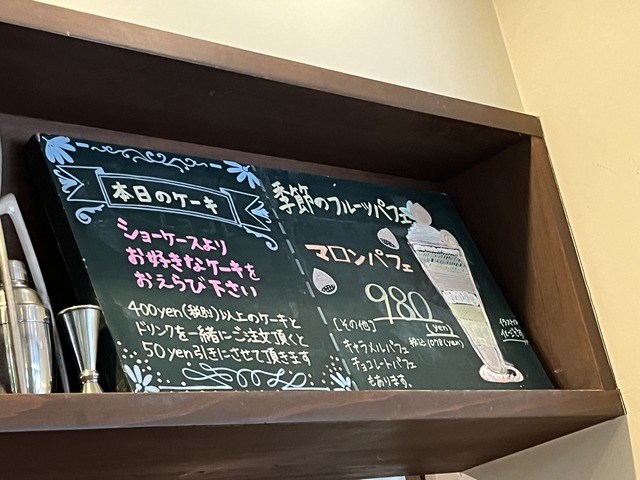 本日のケーキ
ショーケースより
お好きなケーキを
おえらび下さい
400yen(税別)以上のケーキと
ドリンクを一緒にご注文頂くと
50yen引きにさせて頂きます
季節のフルーツパフェ
マロンパフェ
980
(yen)
税込1078(yen)
[その他]
キャラメルパフェ
チョコレートパフェ
もあります。
イラストは